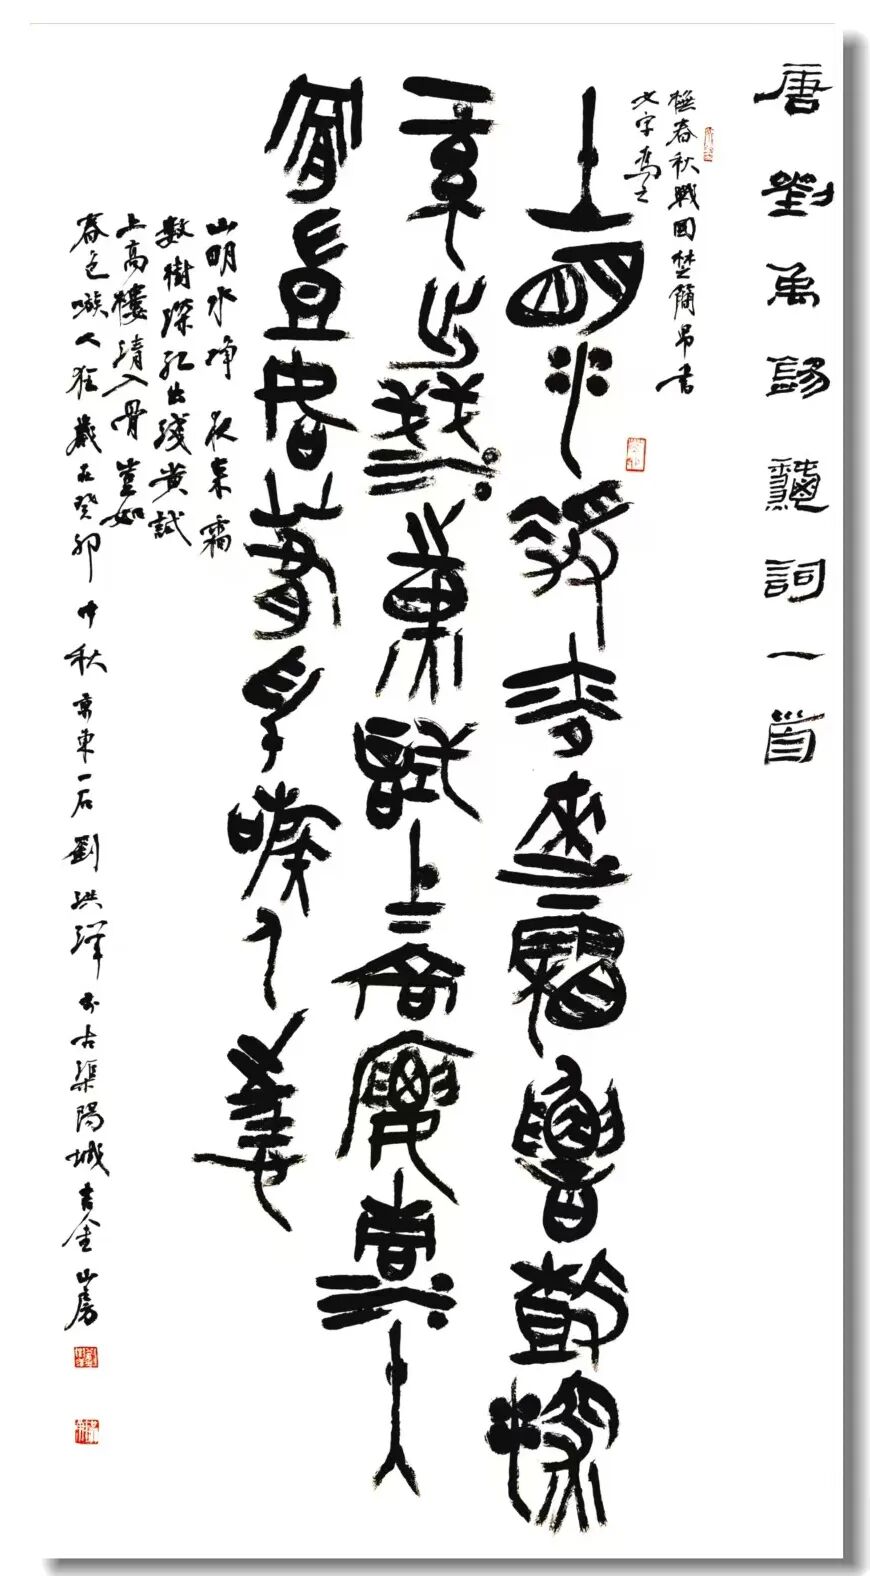 唐劉禹錫龝詞一首
橅春秋戰國楚簡帛書
文字為之
山明水淨夜來霜數樹深
紅出淺黃試上高樓清入
骨豈如春色嗾人狂
山明水淨夜來霜
數樹深紅出淺黃試
上高樓清入骨豈如
春色嗾人狂歲在癸卯仲秋京東一石劉洪澤於古渠陽城吉金山房